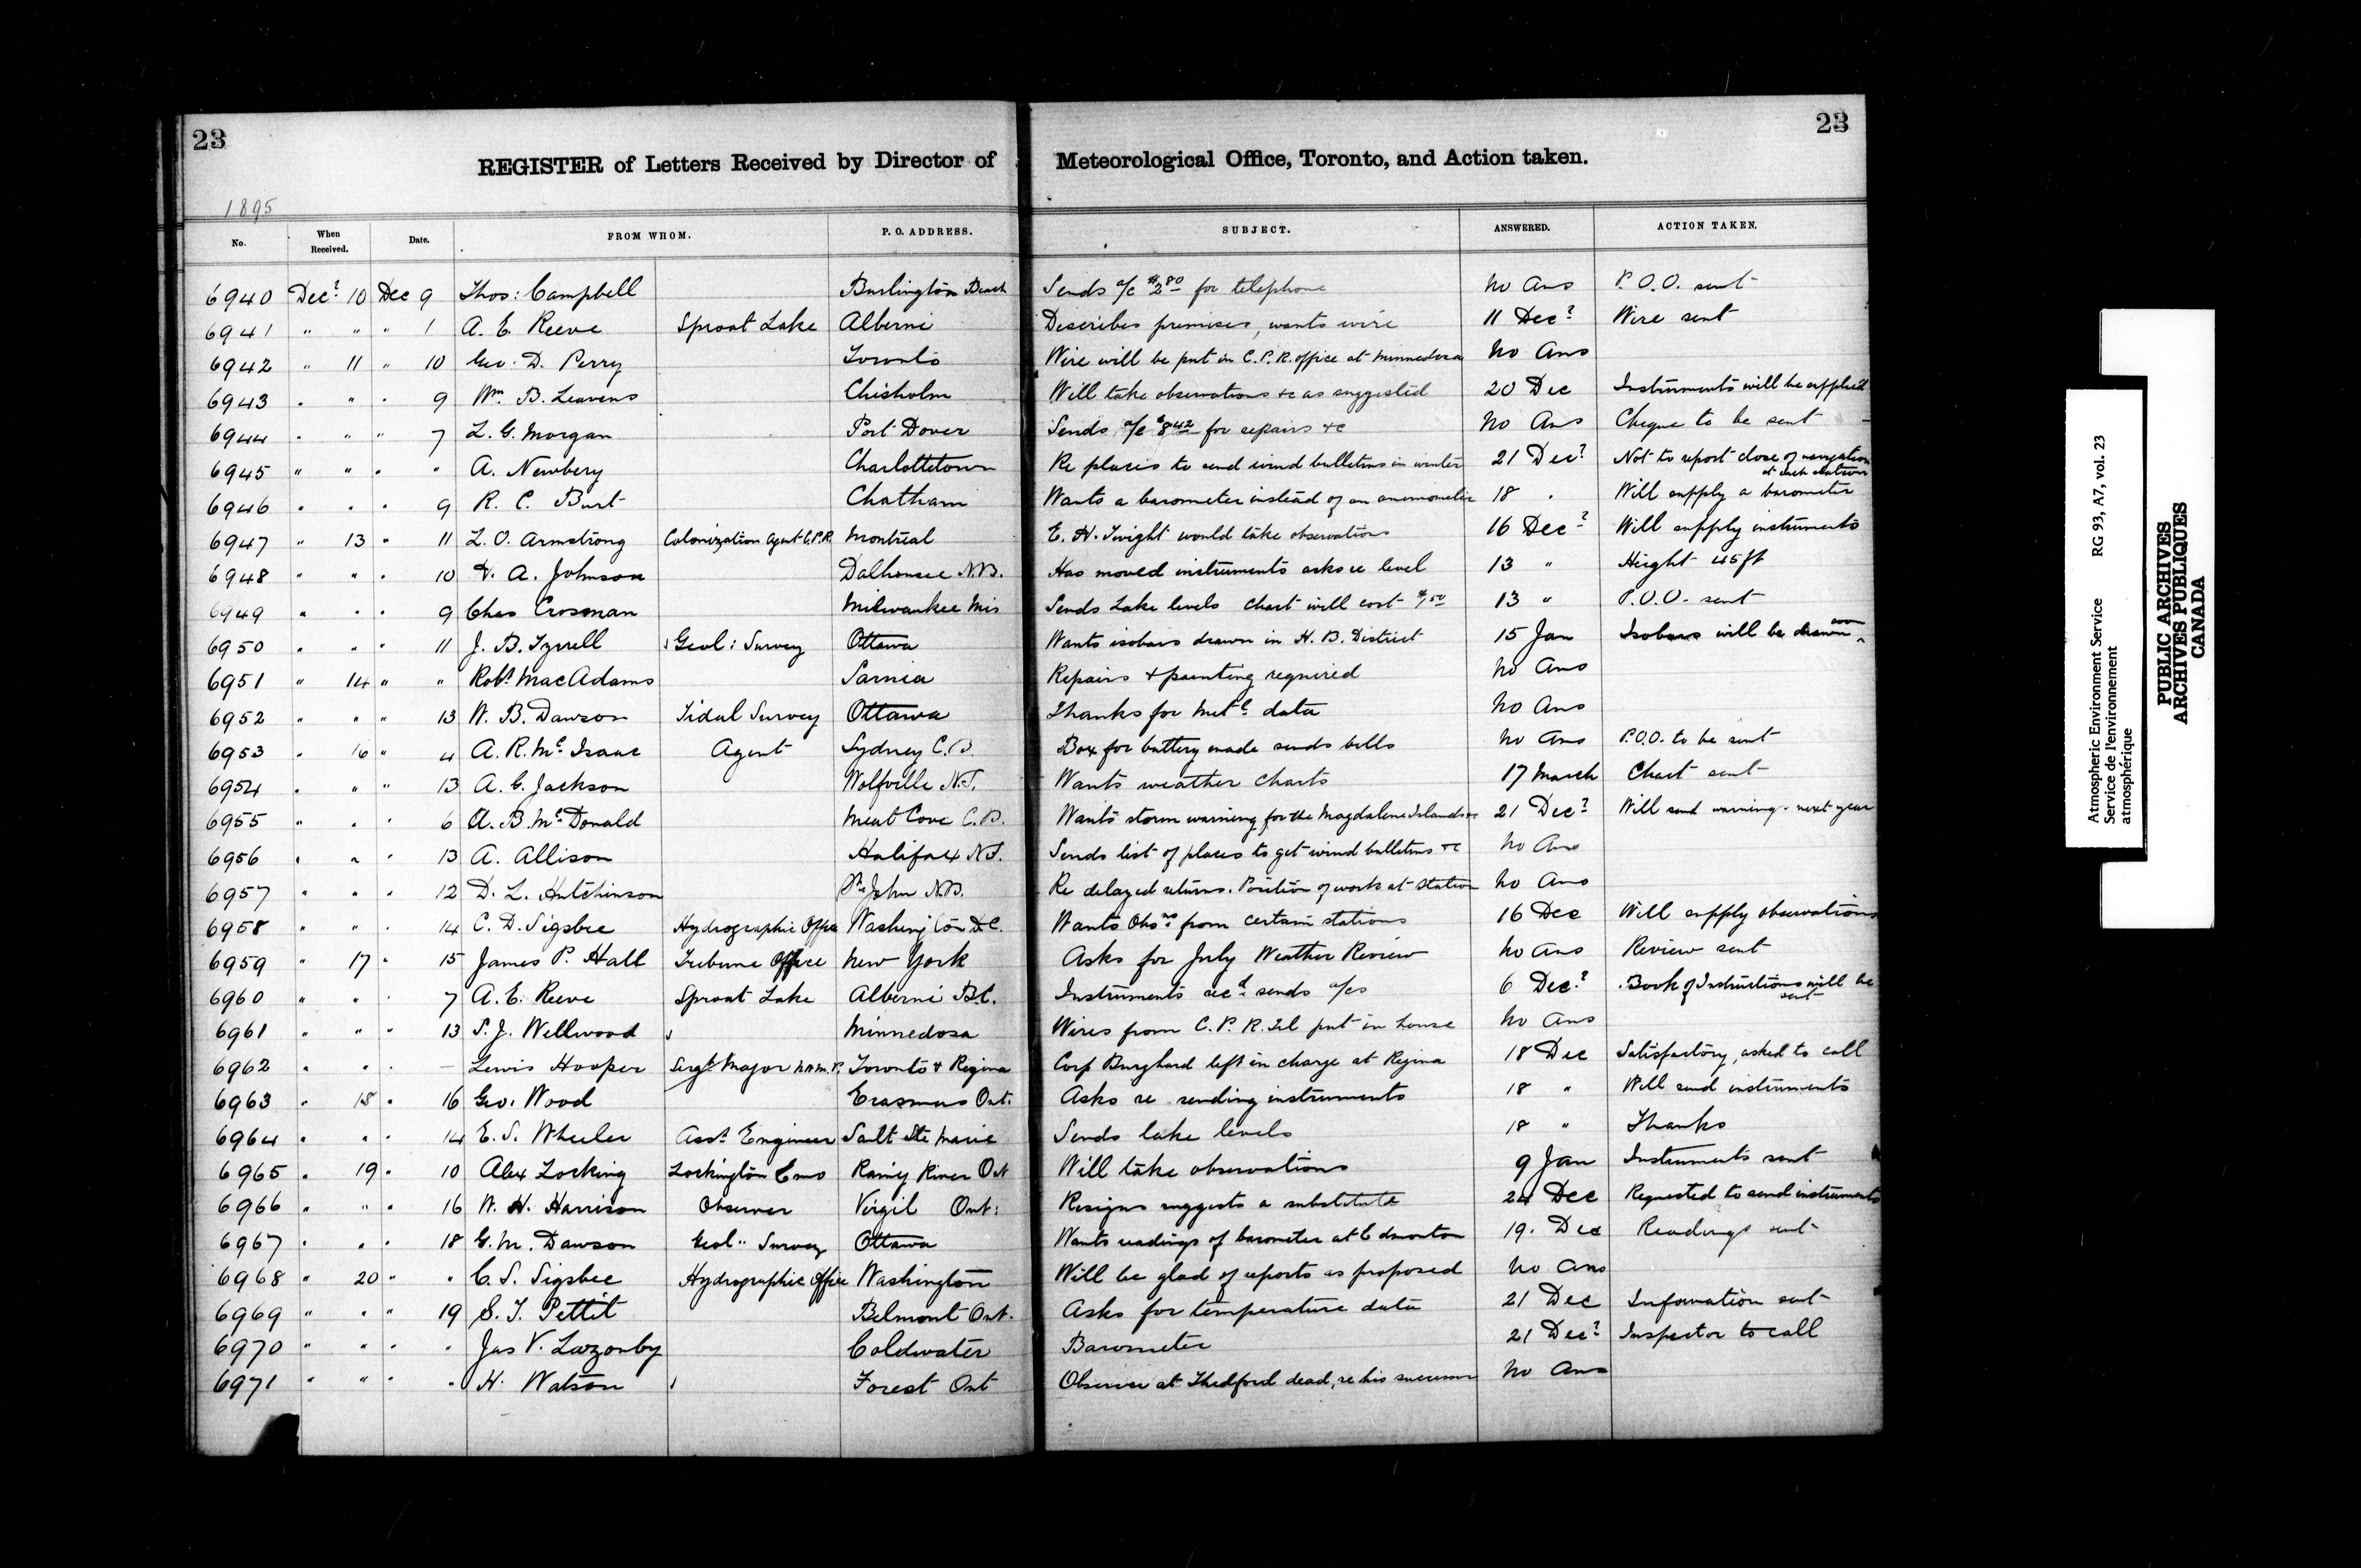 23
23
REGISTER of Letters Received by Director of Meteorological Office, Toronto, and Action taken.
1895
No. When Received. Date. FROM WHOM. P. O. ADDRESS. SUBJECT. ANSWERED. ACTION TAKEN.
6940 Decr 10 Dec 9 Thos: Campbell Burlington Beach Sends a/c $2.80 for telephone No Ans P.O.O. sent
6941 " " " 1 A. E. Reeve Sproat Lake Alberni Describes premises, wants wire 11 Decr Wire sent
6942 " 11 " 10 Geo. D. Perry Toronto Wire will be put in C.P.R. office at Minnedosa No Ans
6943 " " " 9 Wm. B. Leavens Chisholm Will take observations &c as suggested 20 Dec Instruments will be supplied
6944 " " " 7 L. G. Morgan Port Dover Sends a/c $8.42 for repairs &c No Ans Cheque to be sent
6945 " " " " A. Newbery Charlottetown Re places to send wind bulletins in winter 21 Decr Not to report close of navigation at each station
6946 " " " 9 R. C. Burt Chatham Wants a barometer instead of an anemometer 18 " Will supply a barometer
6947 " 13 " 11 L. O. Armstrong Colonization Agent C.P.R. Montreal E. H. would take observations 16 Decr Will supply instruments
6948 " " " 10 A. Johnson Dalhousie N.B. Has moved instruments asks re level 13 " Height 45 ft
6949 " " " 9 Chas Crosman Milwaukee Wis Sends Lake levels chart will cost $1.50 13 " P.O.O. sent
6950 " " " 11 J. B. Tyrrell Geol: Survey Ottawa Wants isobars drawn in H. B. District 15 Jan Isobars will be drawn soon
6951 " 14 " " Robt MacAdams Sarnia Repairs & painting required No Ans
6952 " " " 13 W. B. Dawson Tidal Survey Ottawa Thanks for Metl data No Ans
6953 " 16 " 4 A. R. Mc Isaac Agent Sydney C.B. Box for battery made sends bills No Ans P.O.O. to be sent
6954 " " " 13 A. C. Jackson Wolfville N.S. Wants weather charts 17 March Chart sent
6955 " " " 6 A. B. Mc Donald Meat Cove C.B. Wants storm warning for the Magdalene Islands 21 Decr Will send warning next year
6956 " " " 13 A. Allison Halifax N.S. Sends list of places to get wind bulletins &c No Ans
6957 " " " 12 D. L. Hutchinson St John N.B. Re delayed returns. Position of work at station No Ans
6958 " " " 14 C. D. Sigsbee Hydrographic Office Washington D.C. Wants Obsns from certain stations 16 Dec Will supply observations
6959 " 17 " 15 James P. Hall Tribune Office New York Asks for July Weather Review No Ans Review sent
6960 " " " 7 A. E. Reeve Sproat Lake Alberni B.C. Instruments recd sends a/cs 6 Decr Book of Instructions will be sent
6961 " " " 13 S. J. Wellwood Minnedosa Wires from C. P. R. Tel put in house No Ans
6962 " " " — Lewis Hooper Sergt Major N.W.M.P. Toronto & Regina Corp Burghard left in charge at Regina 18 Dec Satisfactory, asked to call
6963 " 18 " 16 Geo. Wood Erasmus Ont. Asks re sending instruments 18 " Will send instruments
6964 " " " 14 E. S. Wheeler Asst Engineer Sault Ste Marie Sends lake levels 18 " Thanks
6965 " 19 " 10 Alex Locking Lockington Emo Rainy River Ont Will take observations 9 Jan Instruments sent
6966 " " " 16 W. H. Harrison Observer Virgil Ont: Resigns suggests a substitute 24 Dec Requested to send instruments
6967 " " " 18 G. M. Dawson Geol. Survey Ottawa Wants readings of barometer at Edmonton 19. Dec Readings sent
6968 " 20 " " C. S. Sigsbee Hydrographic Office Washington Will be glad of reports as proposed No Ans
6969 " " " 19 S. T. Pettit Belmont Ont. Asks for temperature data 21 Dec Information sent
6970 " " " " Jas V. Lazonby Coldwater Barometer 21 Decr Inspector to call
6971 " " " " H. Watson Forest Ont Observer at Thedford dead, re his successor No Ans
Atmospheric Environment Service RG 93, A7, vol. 23
Service de l'environnement
atmosphérique
PUBLIC ARCHIVES
ARCHIVES PUBLIQUES
CANADA